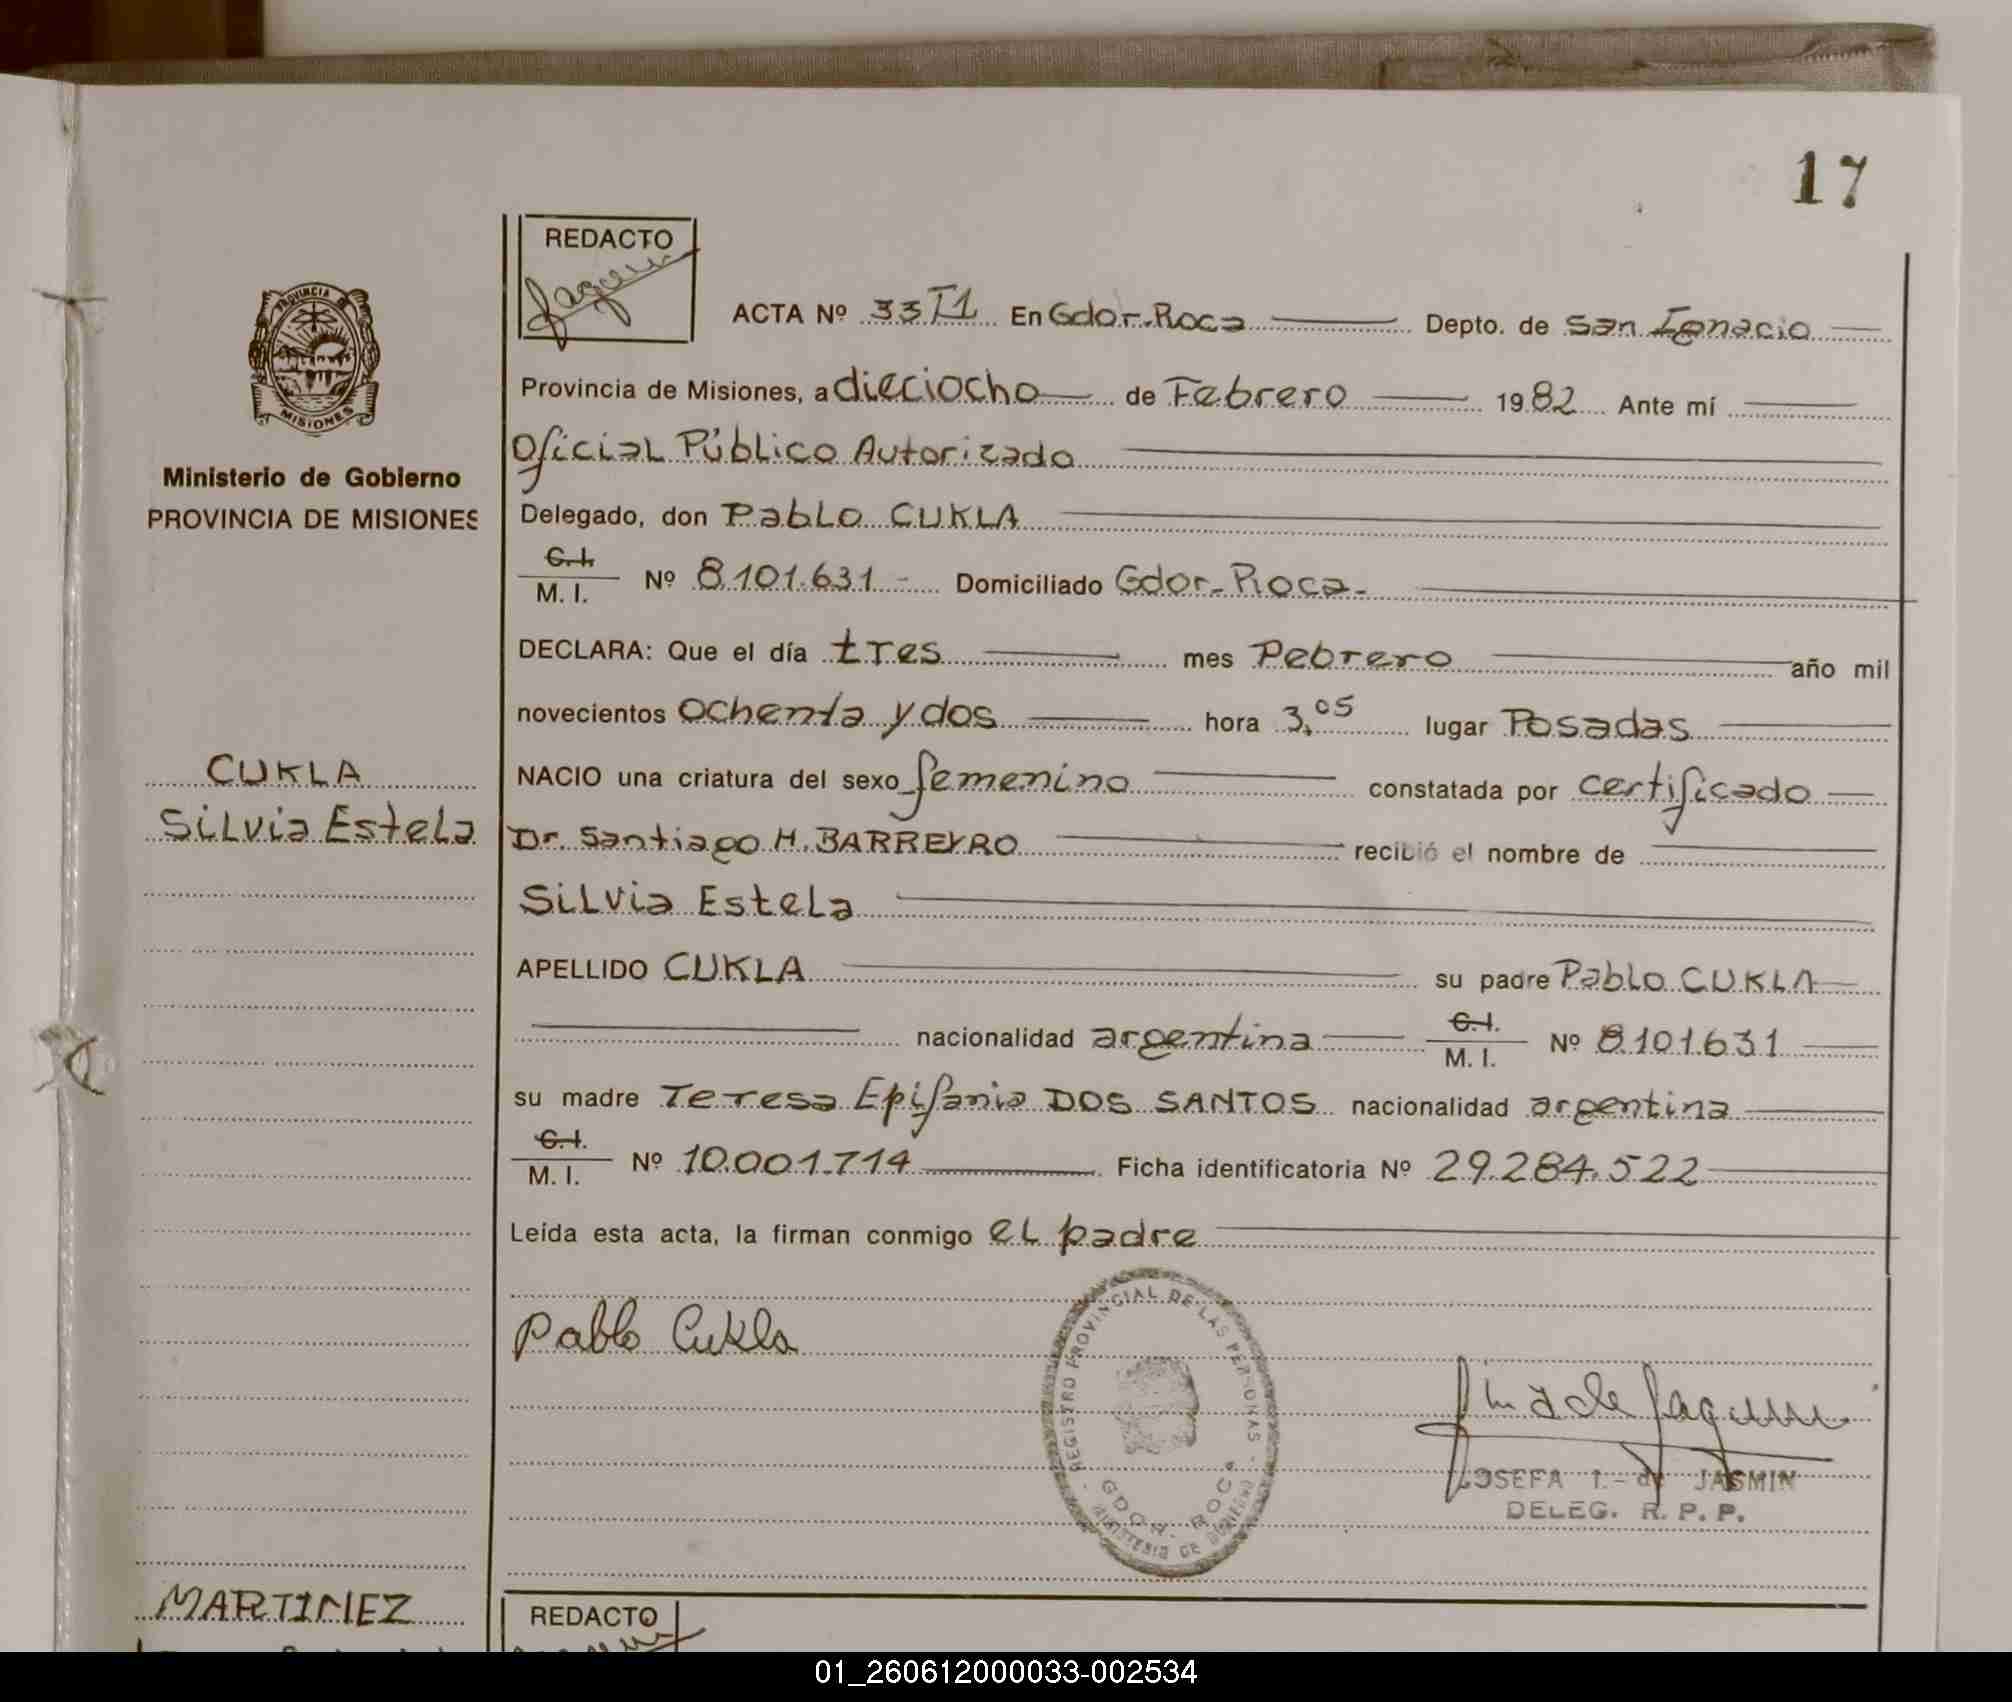 17
REDACTO
ACTA Nº 33T1 En Gdor. Roca Depto. de San Ignacio
PROVINCIA DE MISIONES
Provincia de Misiones, a dieciocho de Febrero 1982 Ante mí
Oficial Público Autorizado
Ministerio de Gobierno
PROVINCIA DE MISIONES
Delegado, don Pablo CUKLA
C.I.
M. I. Nº 8.101.631.- Domiciliado Gdor. Roca.-
DECLARA: Que el día tres mes Febrero año mil
novecientos ochenta y dos hora 3,05 lugar Posadas
CUKLA
NACIO una criatura del sexo femenino constatada por certificado
Silvia Estela
Dr. Santiago H. BARREYRO recibió el nombre de
Silvia Estela
APELLIDO CUKLA su padre Pablo CUKLA
nacionalidad argentina C.I. M. I. Nº 8.101.631
su madre Teresa Epifania DOS SANTOS nacionalidad argentina
C.I.
M. I. Nº 10.001.714 Ficha identificatoria Nº 29.284.522
Leída esta acta, la firman conmigo el padre
Pablo Cukla
REGISTRO PROVINCIAL DE LAS PERSONAS
GDOR. ROCA
MINISTERIO DE GOBIERNO
JOSEFA I. de JASMIN
DELEG. R. P. P.
MARTINEZ
REDACTO
01_260612000033-002534